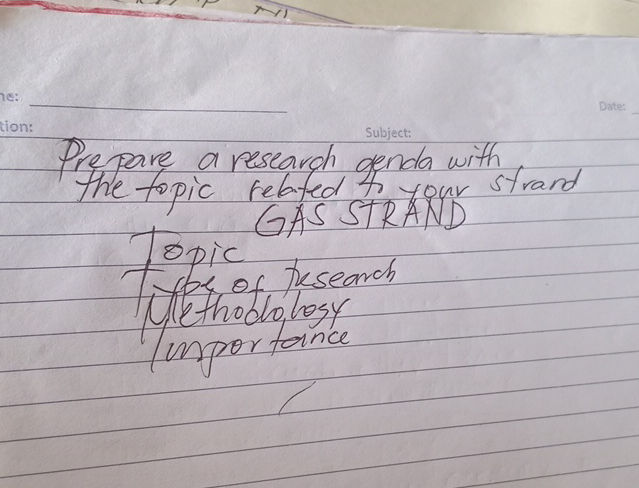 ne:
Date:
tion:
Subject:
Prepare a research genda with
the topic related to your strand
GAS STRAND
Topic
Type of research
Methodology
Importance